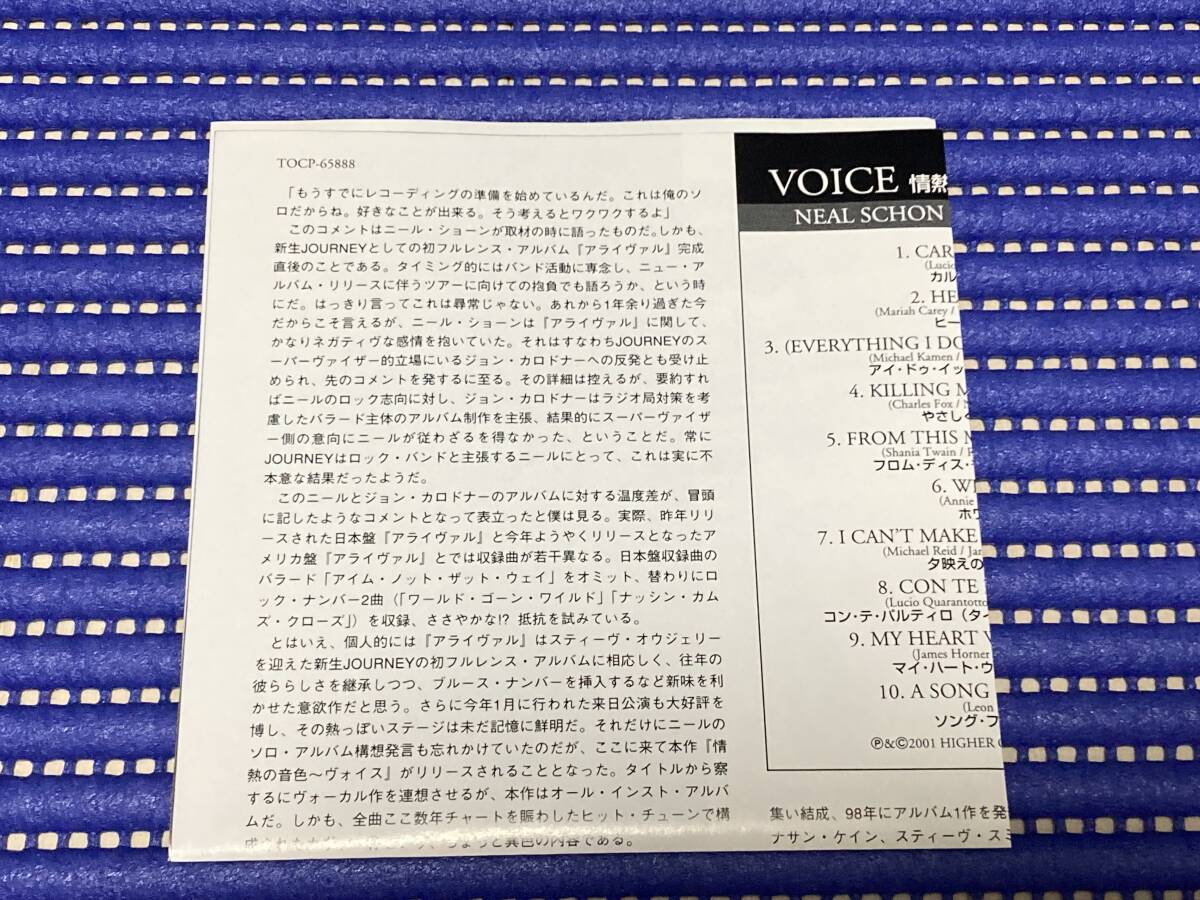 TOCP-65888
「もうすでにレコーディングの準備を始めているんだ。これは俺のソ
ロだからね。好きなことが出来る。そう考えるとワクワクするよ」
このコメントはニール・ショーンが取材の時に語ったものだ。しかも、
新生JOURNEYとしての初フルレンス・アルバム『アライヴァル』完成
直後のことである。タイミング的にはバンド活動に専念し、ニュー・ア
ルバム・リリースに伴うツアーに向けての抱負でも語ろうか、という時
にだ。はっきり言ってこれは尋常じゃない。あれから1年余り過ぎた今
だからこそ言えるが、ニール・ショーンは『アライヴァル』に関して、
かなりネガティヴな感情を抱いていた。それはすなわちJOURNEYのス
ーパーヴァイザー的立場にいるジョン・カロドナーへの反発とも受け止
められ、先のコメントを発するに至る。その詳細は控えるが、要約すれ
ばニールのロック志向に対し、ジョン・カロドナーはラジオ局対策を考
慮したバラード主体のアルバム制作を主張、結果的にスーパーヴァイザ
ー側の意向にニールが従わざるを得なかった、ということだ。常に
JOURNEYはロック・バンドと主張するニールにとって、これは実に不
本意な結果だったようだ。
このニールとジョン・カロドナーのアルバムに対する温度差が、冒頭
に記したようなコメントとなって表立ったと僕は見る。実際、昨年リリ
ースされた日本盤『アライヴァル』と今年ようやくリリースとなったア
メリカ盤『アライヴァル』とでは収録曲が若干異なる。日本盤収録曲の
バラード「アイム・ノット・ザット・ウェイ」をオミット、替わりにロ
ック・ナンバー2曲（「ワールド・ゴーン・ワイルド」「ナッシン・カム
ズ・クローズ」）を収録、ささやかな!? 抵抗を試みている。
とはいえ、個人的には『アライヴァル』はスティーヴ・オウジェリー
を迎えた新生JOURNEYの初フルレンス・アルバムに相応しく、往年の
彼ららしさを継承しつつ、ブルース・ナンバーを挿入するなど新味を利
かせた意欲作だと思う。さらに今年1月に行われた来日公演も大好評を
博し、その熱っぽいステージは未だ記憶に鮮明だ。それだけにニールの
ソロ・アルバム構想発言も忘れかけていたのだが、ここに来て本作『情
熱の音色〜ヴォイス』がリリースされることとなった。タイトルから察
するにヴォーカル作を連想させるが、本作はオール・インスト・アルバ
ムだ。しかも、全曲ここ数年チャートを賑わしたヒット・チューンで構
ちょっと異色の内容である。
VOICE 情熱
NEAL SCHON
1. CAR
(Lucio
カル
2. HE
(Mariah Carey /
ヒー
3. (EVERYTHING I DO
(Michael Kamen /
アイ・ドゥ・イッ
4. KILLING M
(Charles Fox /
やさしく
5. FROM THIS M
(Shania Twain /
フロム・ディス・
6. W
(Annie
ホワ
7. I CAN'T MAKE
(Michael Reid /
夕映えの
8. CON TE
(Lucio Quarantotto
コン・テ・パルティロ（タイ
9. MY HEART W
(James Horner
マイ・ハート・ウ
10. A SONG
(Leon
ソング・フ
℗&©2001 HIGHER
集い結成、98年にアルバム1作を発
ナサン・ケイン、スティーヴ・スミ